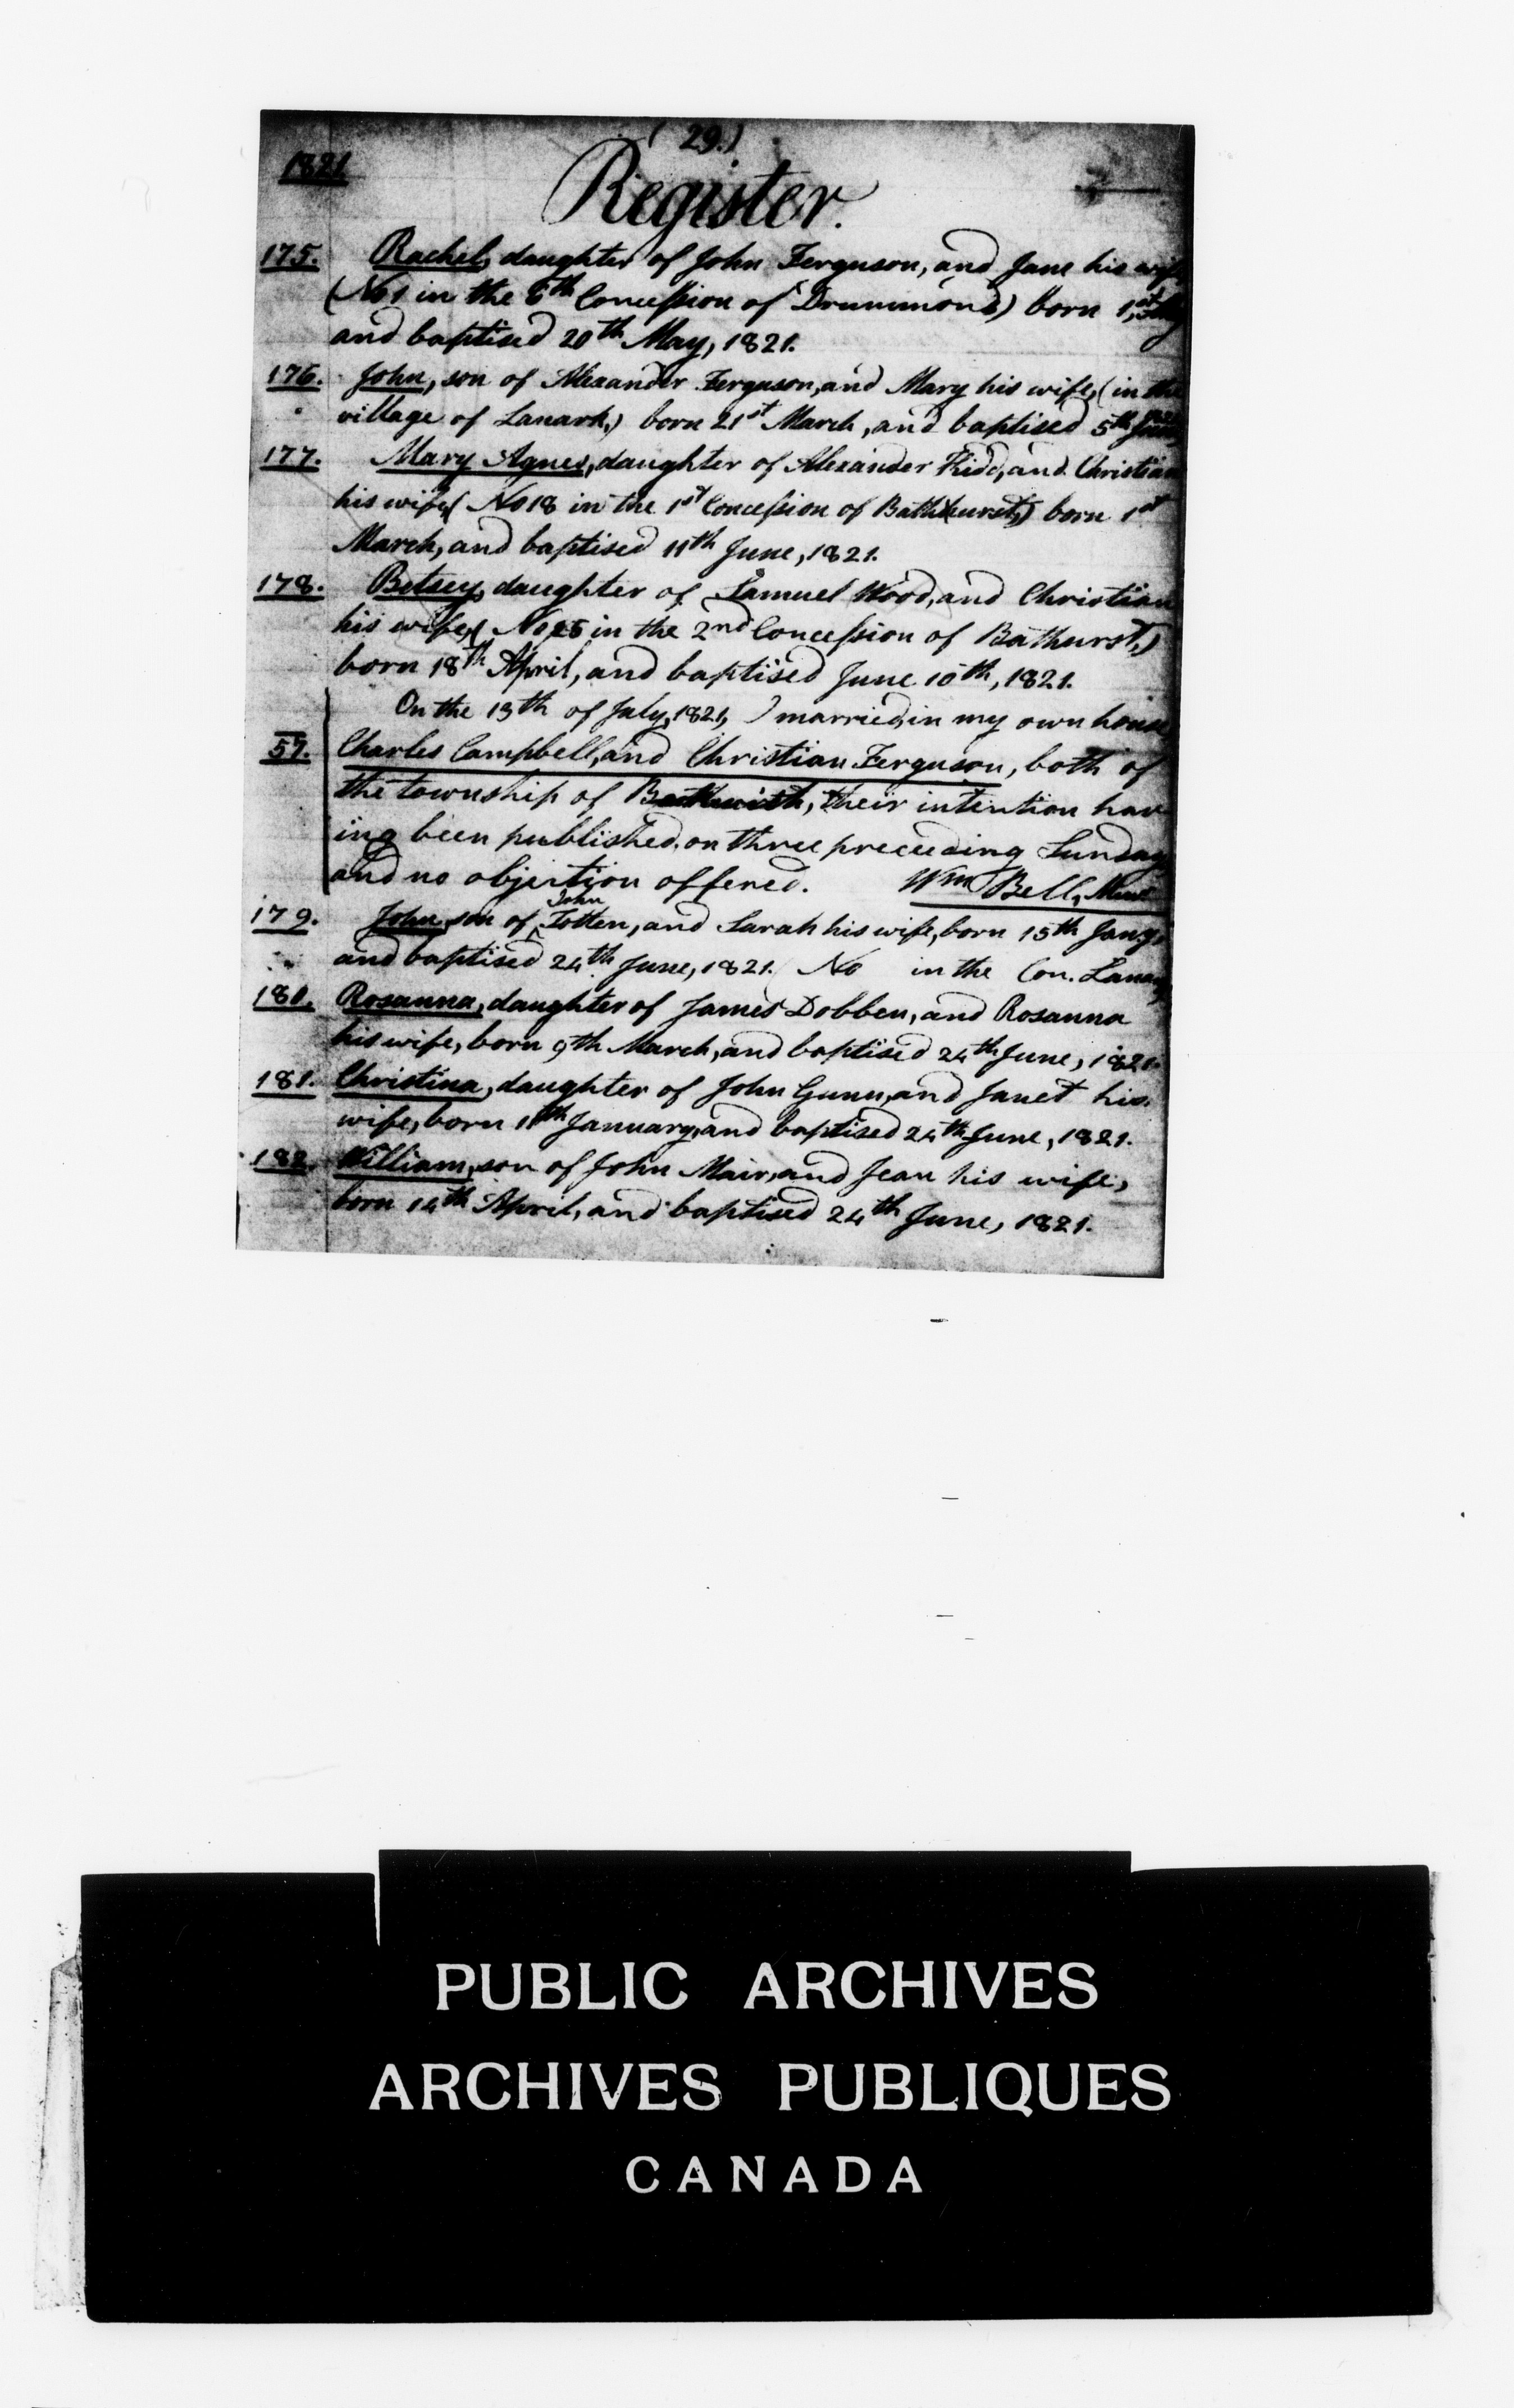 (29.)
1821
Register.
175. Rachel, daughter of John Ferguson, and Jane his wife
(No 1 in the 8th Concession of Drummond) born 1st
and baptised 20th May, 1821.
176. John, son of Alexander Ferguson, and Mary his wife, (in the
village of Lanark,) born 21st March, and baptised 5th
177. Mary Agnes, daughter of Alexander Kidd, and Christian
his wife, (No 18 in the 1st Concession of Bathurst,) born 1st
March, and baptised 11th June, 1821.
178. Betsey, daughter of Samuel Wood, and Christian
his wife, (No 25 in the 2nd Concession of Bathurst,)
born 18th April, and baptised June 10th, 1821.
On the 13th of July, 1821, I married, in my own house
57. Charles Campbell, and Christian Ferguson, both of
the township of Beckwith, their intention hav
ing been published, on three preceeding Sundays
and no objection offered. Wm Bell, Minr
179. John, son of John Totten, and Sarah his wife, born 15th Jany.
and baptised 24th June, 1821. (No in the Con. Lanark
180. Rosanna, daughter of James Dobben, and Rosanna
his wife, born 9th March, and baptised 24th June, 1821.
181. Christina, daughter of John Gunn, and Janet his
wife, born 11th January, and baptised 24th June, 1821.
182. William, son of John Mair, and Jean his wife,
born 14th April, and baptised 24th June, 1821.
PUBLIC ARCHIVES
ARCHIVES PUBLIQUES
CANADA